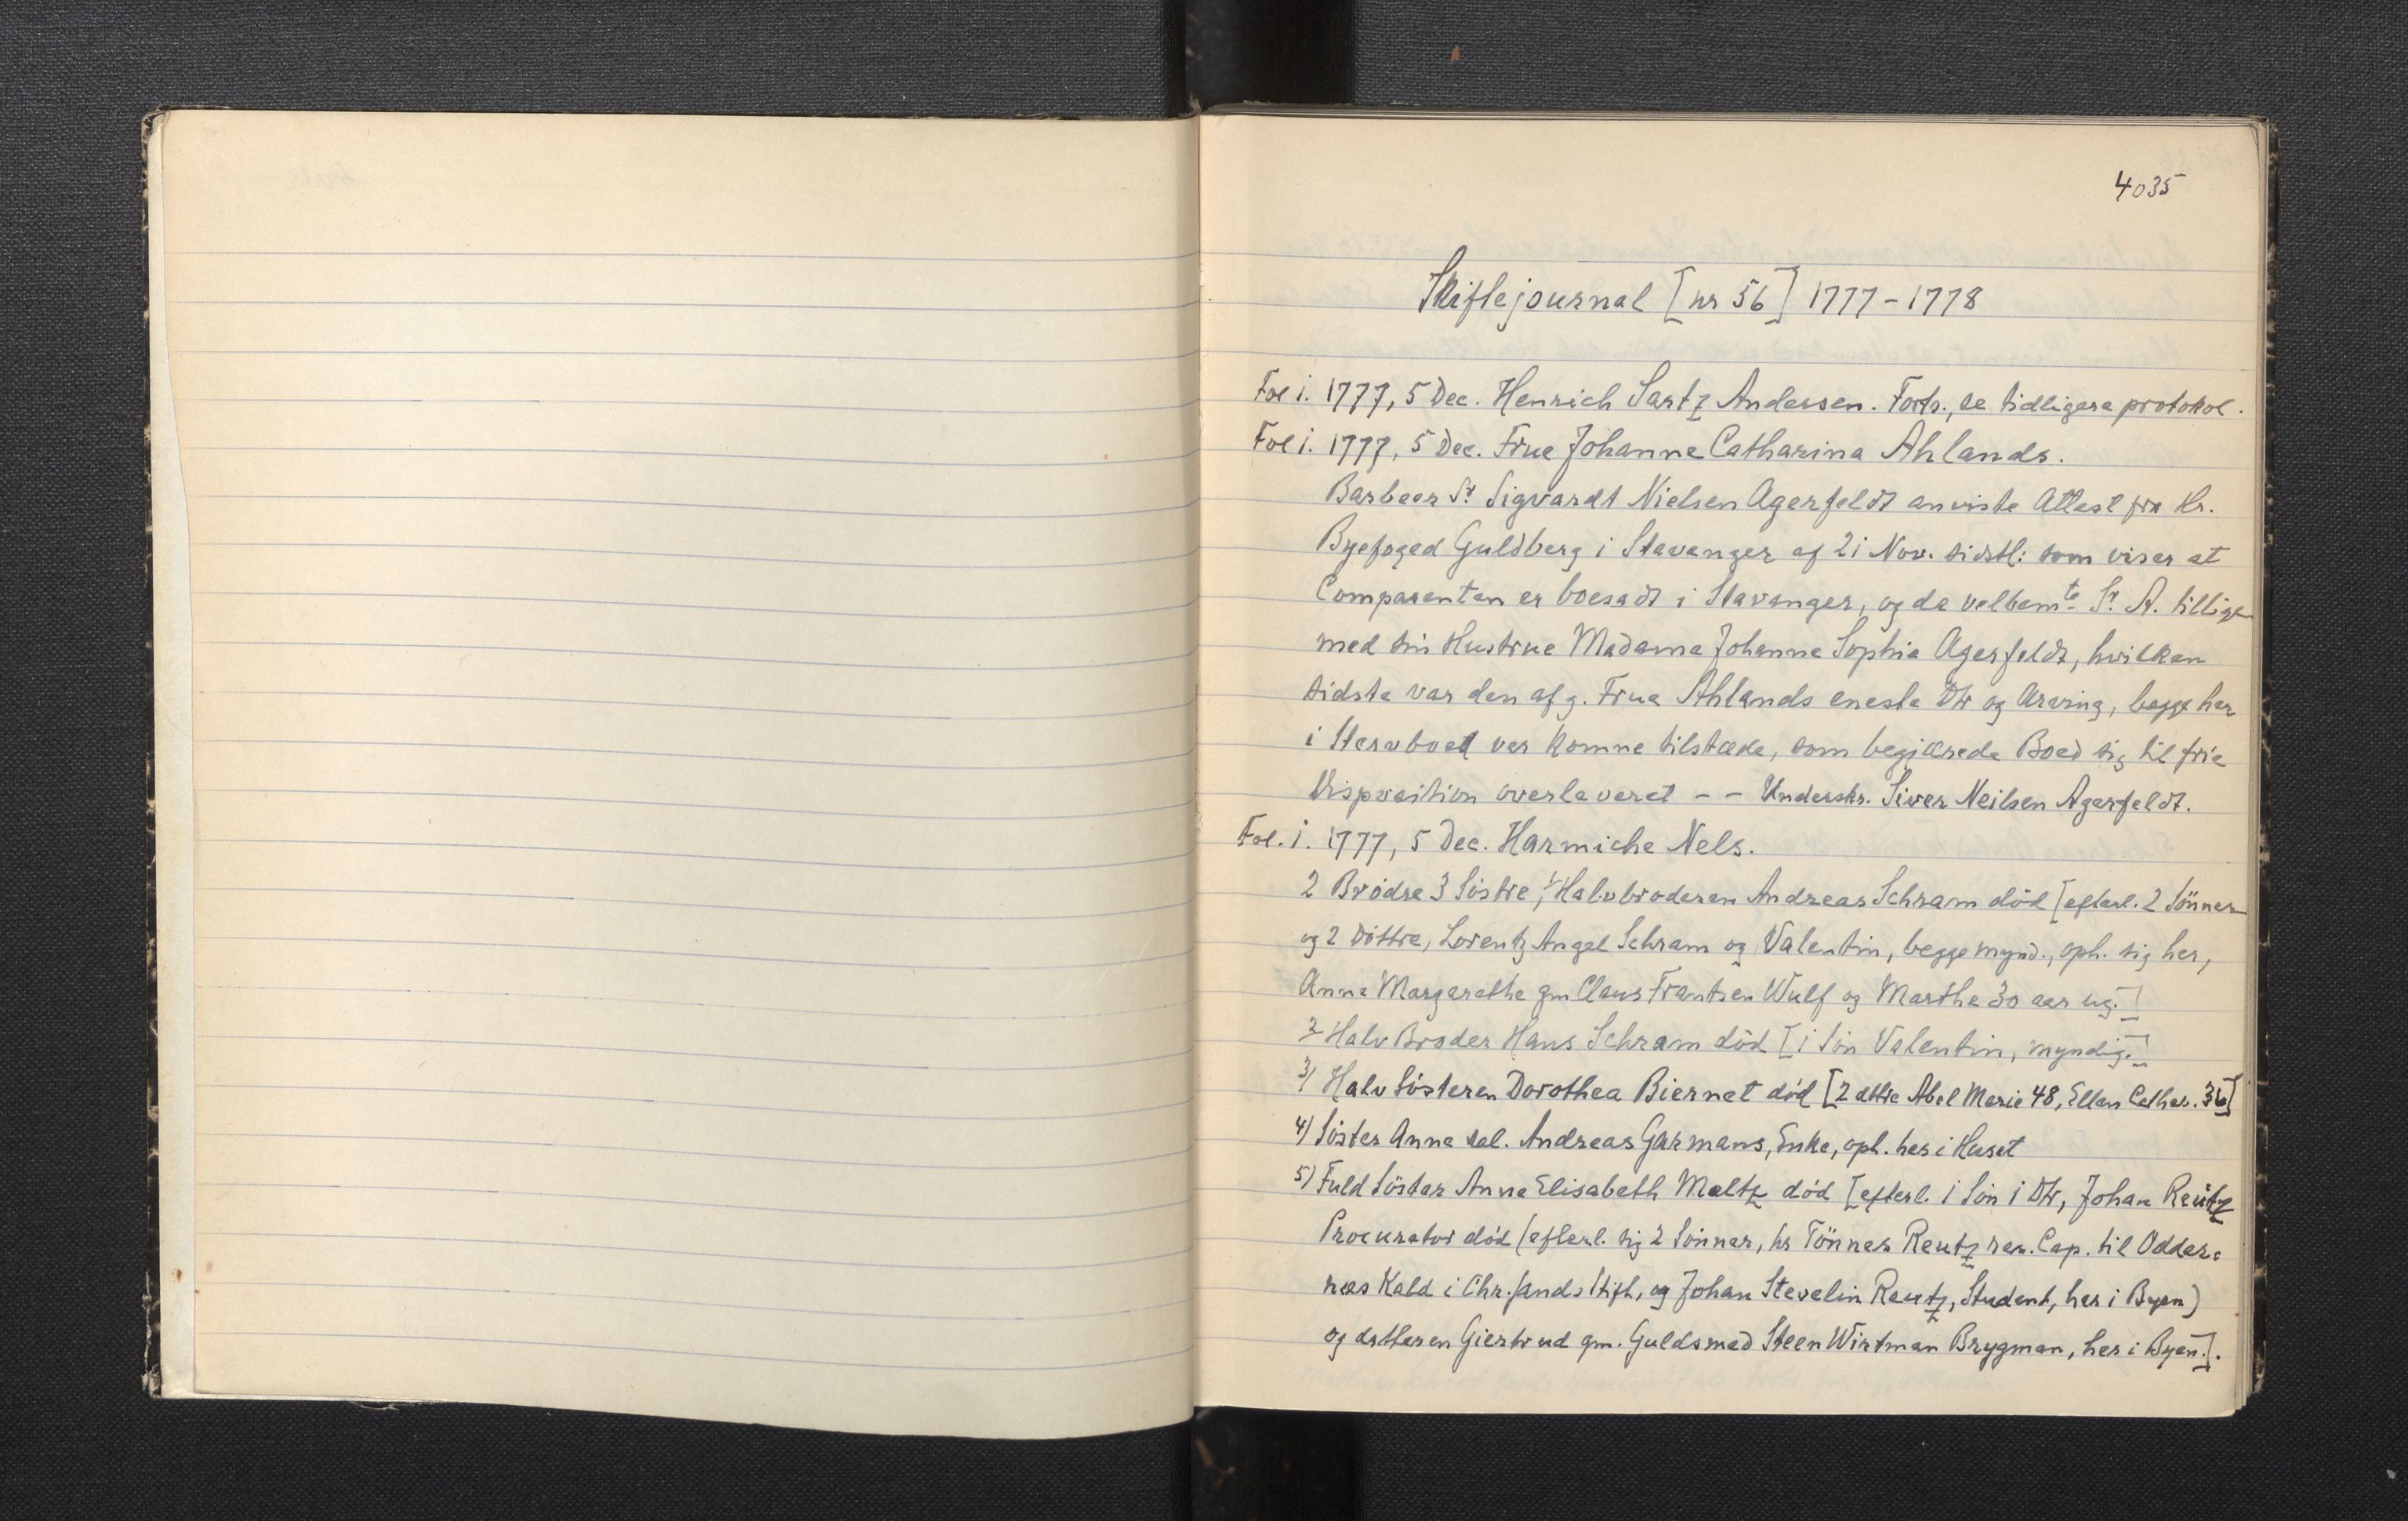 4035
Skiftejournal [nr 56] 1777-1778
Fol 1. 1777, 5 Dec. Henrich Sartz Andersen. Forts., se tidligere protokol.
Fol 1. 1777, 5 Dec. Frue Johanne Catharina Ahlands.
Barbeer Sr. Sigvardt Nielsen Agerfeldt anviste Attest fra Hr.
Byefoged Guldberg i Stavanger af 21 Nov. sidstl: som viser at
Comparenten er boesadt i Stavanger, og da velbemte. Sr. A. tillige
med sin Hustrue Madame Johanne Sophie Agerfeldt, hvilken
sidste var den afg. Frue Ahlands eneste Dtr og Arving, begge her
i Stervboet var komne tilstæde, som begjærede Boed sig til frie
Disposition overleveret - - Underskr. Siver Neilsen Agerfeldt.
Fol. 1. 1777, 5 Dec. Harmiche Nels.
2 Brödre 3 Söstre, 1/ Halvbroderen Andreas Schram död [efterl. 2 Sönner
og 2 Döttre, Lorentz Angel Schram og Valentin, begge mynd., oph. sig her,
Anne Margarethe gm Claus Frantsen Wulf og Marthe 30 aar ug.]
2 Halv Broder Hans Schram död [1 Sön Valentin, myndig.]
3/ Halv Sösteren Dorothea Biernet död [2 dttre Abel Marie 48, Ellen Cathar. 36]
4) Söster Anne sal. Andreas Garmans, Enke, oph. her i Huset
5) Fuld Söster Anne Elisabeth Meltz död [efterl. 1 Sön 1 Dtr, Johan Reutz
Procurator död (efterl. sig 2 Sönner, hr Tönnes Reutz res. Cap. til Odder=
næs Kald i Chr.sands Stift, og Johan Stevelin Reutz, Student, her i Byen)
og datteren Giertrud gm. Guldsmed Steen Wirtman Brygman, her i Byen.].